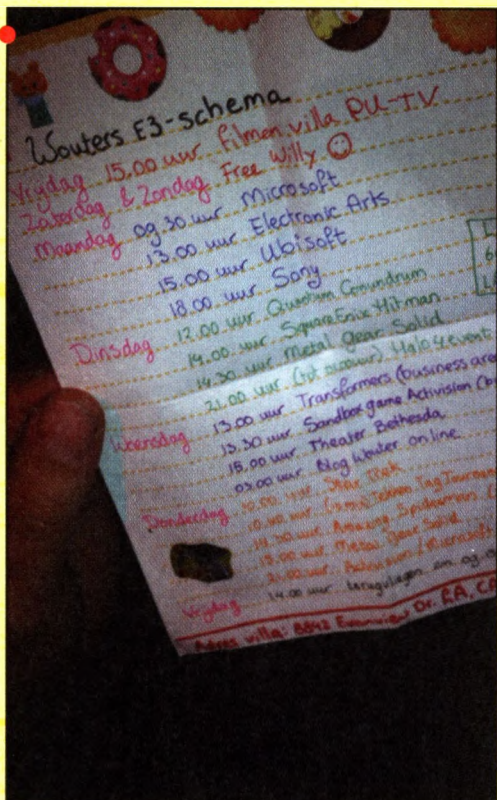 Wouters E3-schema
Vrijdag 15.00 uur filmen villa PU-TV
Zaterdag & Zondag Free Willy
Maandag 09.30 uur Microsoft
13.00 uur Electronic Arts
15.00 uur Ubisoft
18.00 uur Sony
Dinsdag 12.00 uur Quantum Conundrum
14.00 uur Square Enix Hitman
14.30 uur Metal Gear Solid
21.00 uur (tot uur) Halo 4 event
Woensdag 13.00 uur Transformers (business
13.30 uur Sandbox game Activision
15.00 uur Theater Bethesda
03.00 uur Blog Wouter online
Donderdag 10.00 uur Star Trek
Tekken Tag
14.30 uur Amazing Spiderman
Metal Gear Solid
21.00 uur Activision / Microsoft
Vrijdag 14.00 uur terugvliegen en
Adres villa: 8842 Evanview Dr. LA, CA